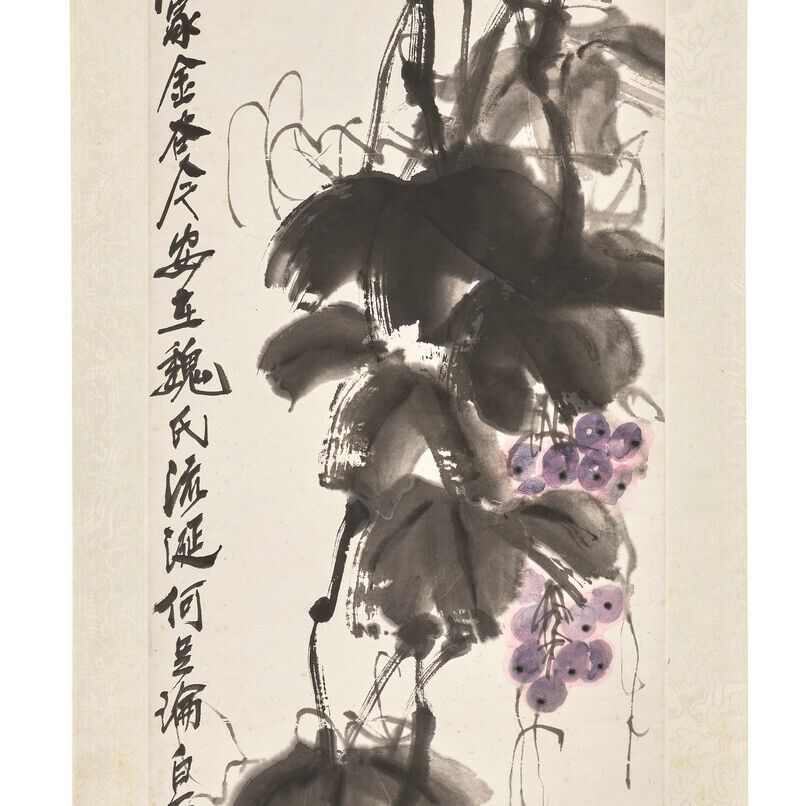 家金谷今安在魏氏流涎何足論白